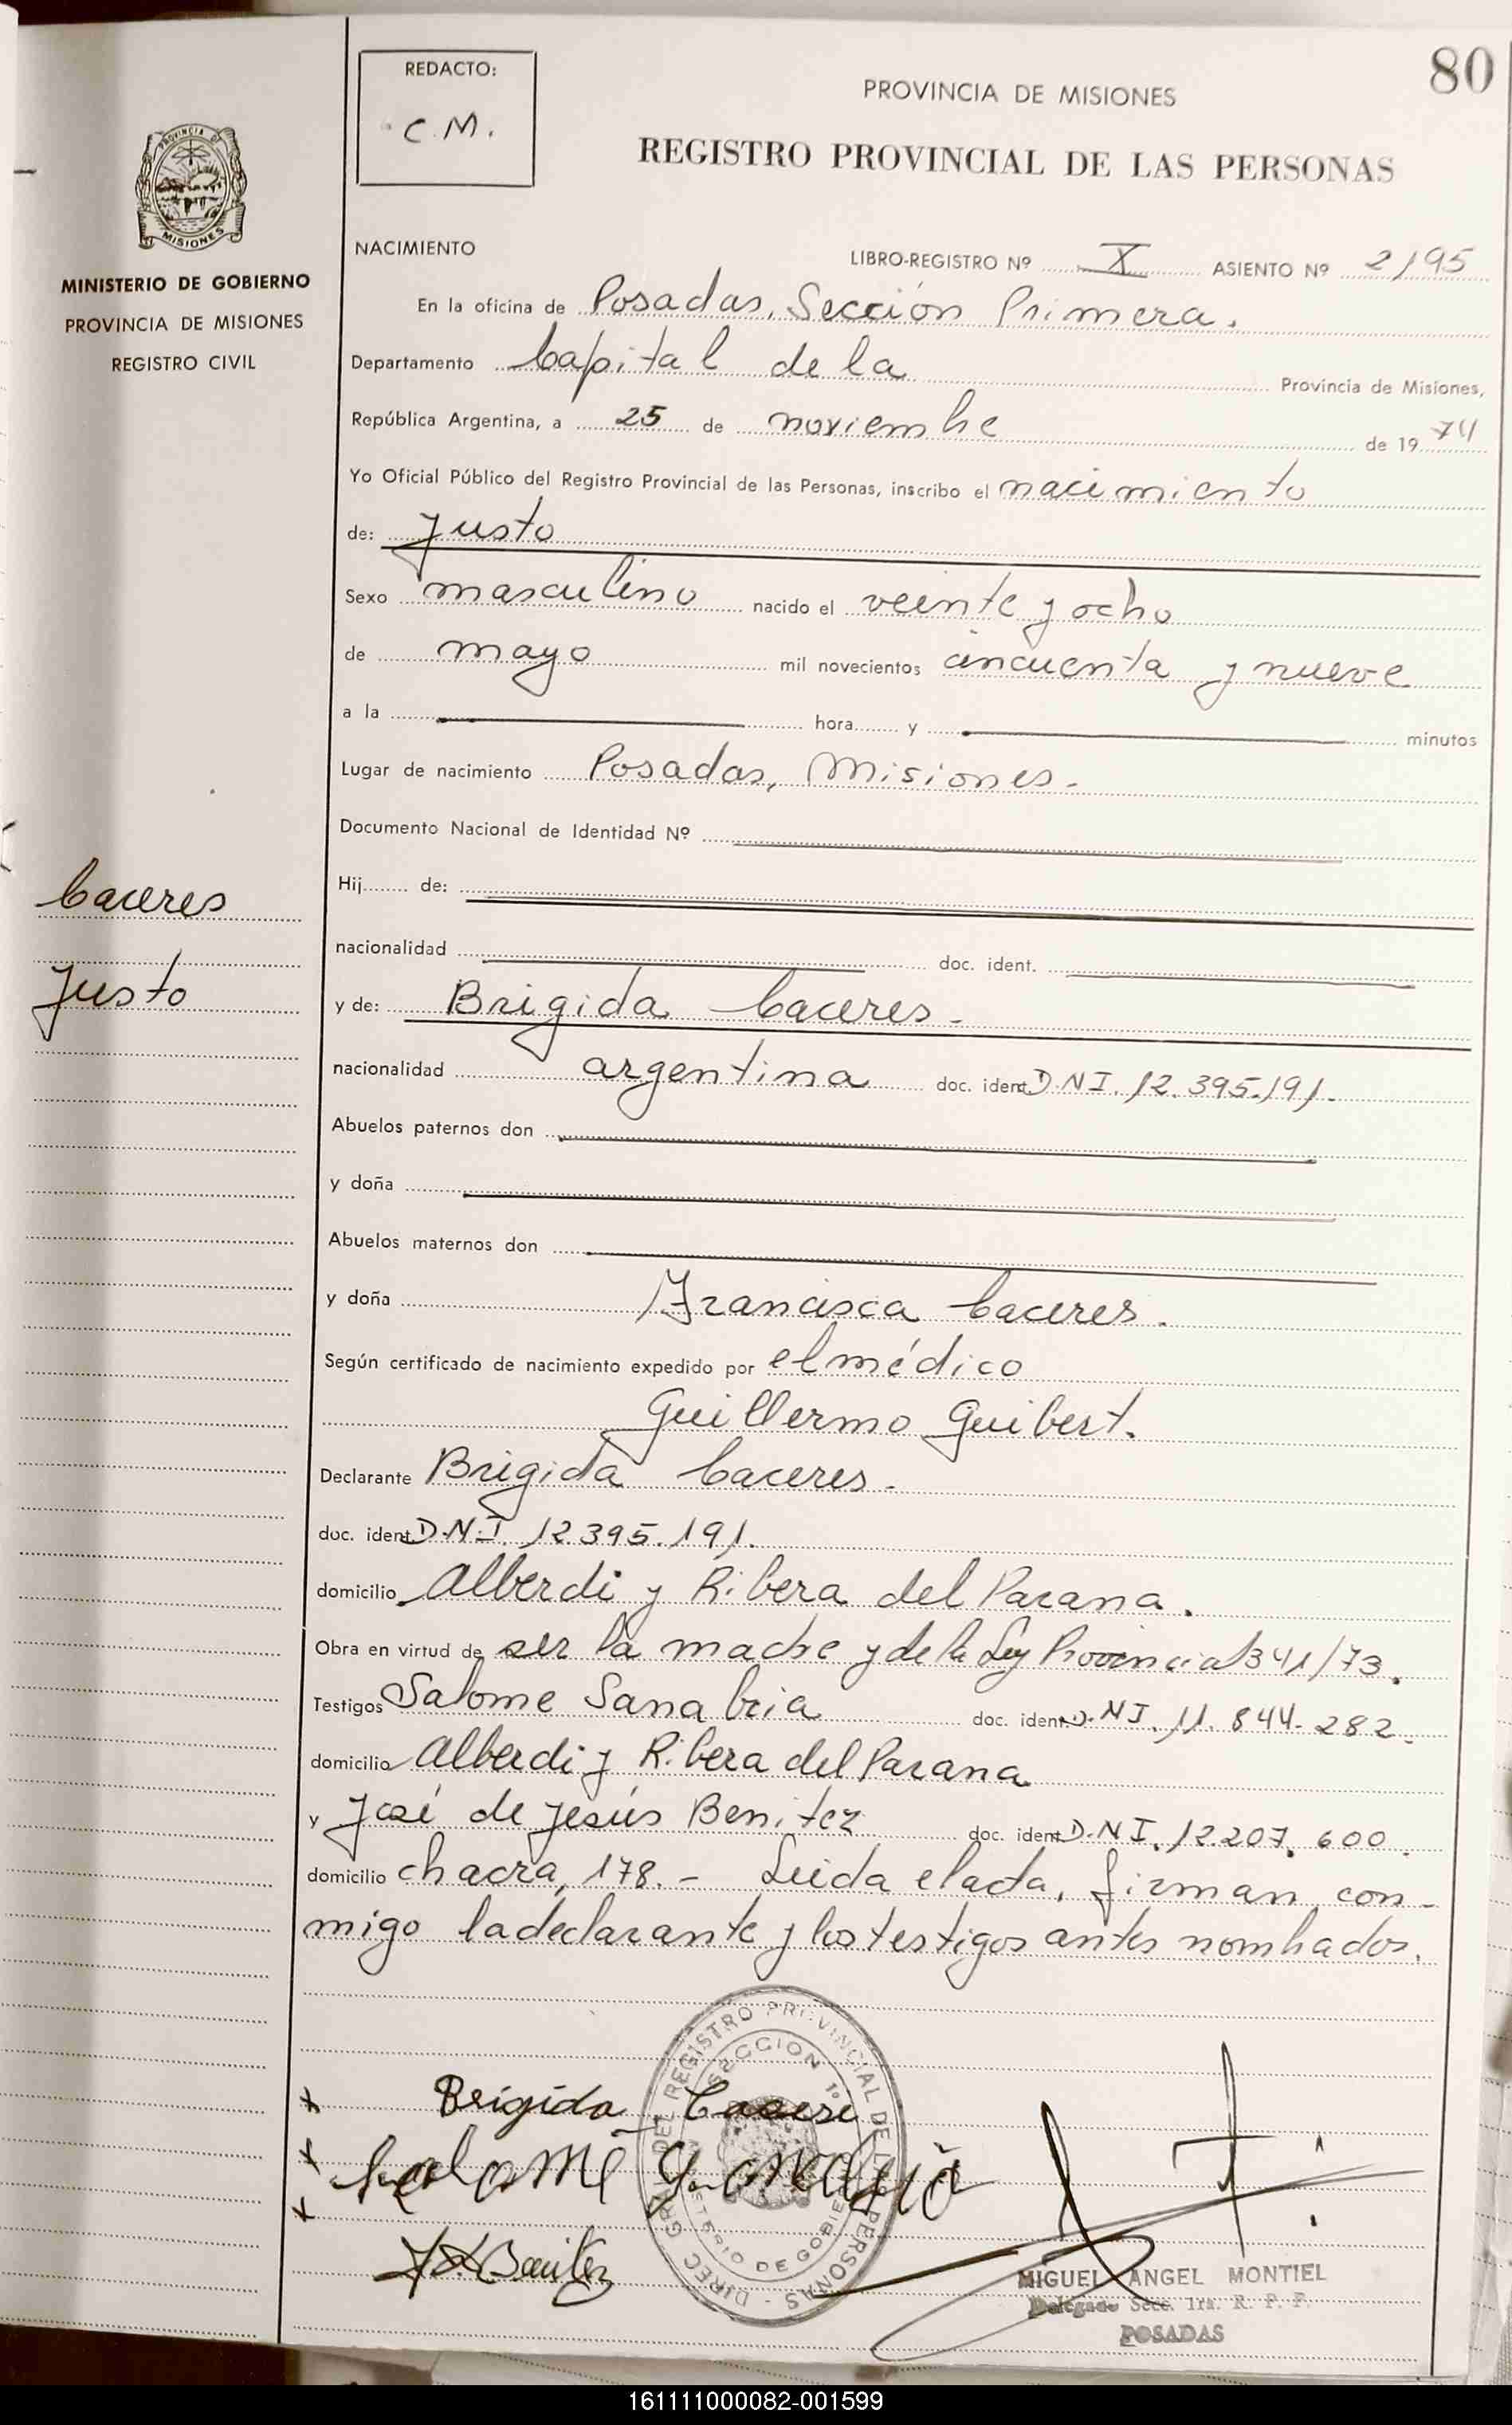 80
REDACTO:
C.M.
PROVINCIA DE MISIONES
REGISTRO PROVINCIAL DE LAS PERSONAS
PROVINCIA DE
MISIONES
MINISTERIO DE GOBIERNO
PROVINCIA DE MISIONES
REGISTRO CIVIL
NACIMIENTO LIBRO-REGISTRO Nº X ASIENTO Nº 2195
En la oficina de Posadas, Sección Primera.
Departamento Capital de la Provincia de Misiones,
República Argentina, a 25 de noviembre de 19 74
Yo Oficial Público del Registro Provincial de las Personas, inscribo el nacimiento
de: Justo
Sexo masculino nacido el veinte y ocho
de mayo mil novecientos cincuenta y nueve
a la hora y minutos
Lugar de nacimiento Posadas, Misiones.
Documento Nacional de Identidad Nº
Caceres
Justo
Hij de:
nacionalidad doc. ident.
y de: Brigida Caceres.
nacionalidad argentina doc. ident D.N.I. 12.395.191.
Abuelos paternos don
y doña
Abuelos maternos don
y doña Francisca Caceres.
Según certificado de nacimiento expedido por el médico
Guillermo Guibert.
Declarante Brigida Caceres.
doc. ident D.N.I. 12.395.191.
domicilio Alberdi y Ribera del Parana.
Obra en virtud de ser la madre y de la Ley Provincial 341/73.
Testigos Salome Sanabria doc. ident D.N.I. 11.844.282.
domicilio Alberdi y Ribera del Parana
y José de Jesús Benitez doc. ident D.N.I. 12.207.600.
domicilio chacra, 178.- Leida el acta, firman con-
migo la declarante y los testigos antes nombrados.
DIREC GRAL DEL REGISTRO PROVINCIAL DE LAS PERSONAS -
SECCION 1º
MINISTERIO DE GOBIERNO
x Brigida Caceres
x Salomé
x Benitez
MIGUEL ANGEL MONTIEL
Delegado Secc. 1ra. R. P. P.
POSADAS
161111000082-001599